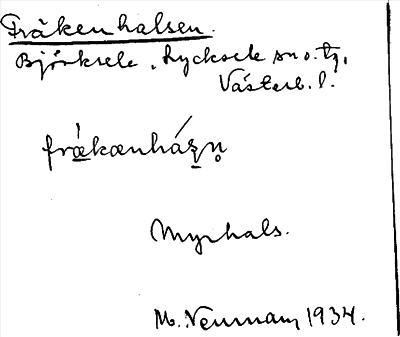 Fräkenhalsen.
Björksele, Lycksele sn o. tg,
Västerb. l.
frækænházn̥
Myrhals.
M. Neuman, 1934.